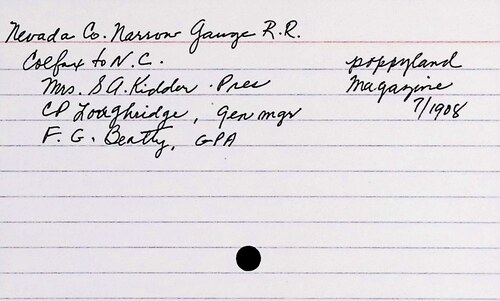 Nevada Co. Narrow Gauge R.R.
Colfax to N.C.
Mrs. S A. Kidder - Pres
CP Loughridge, Gen mgr
F. G. Beatty, GPA
poppyland
Magazine
7/1908